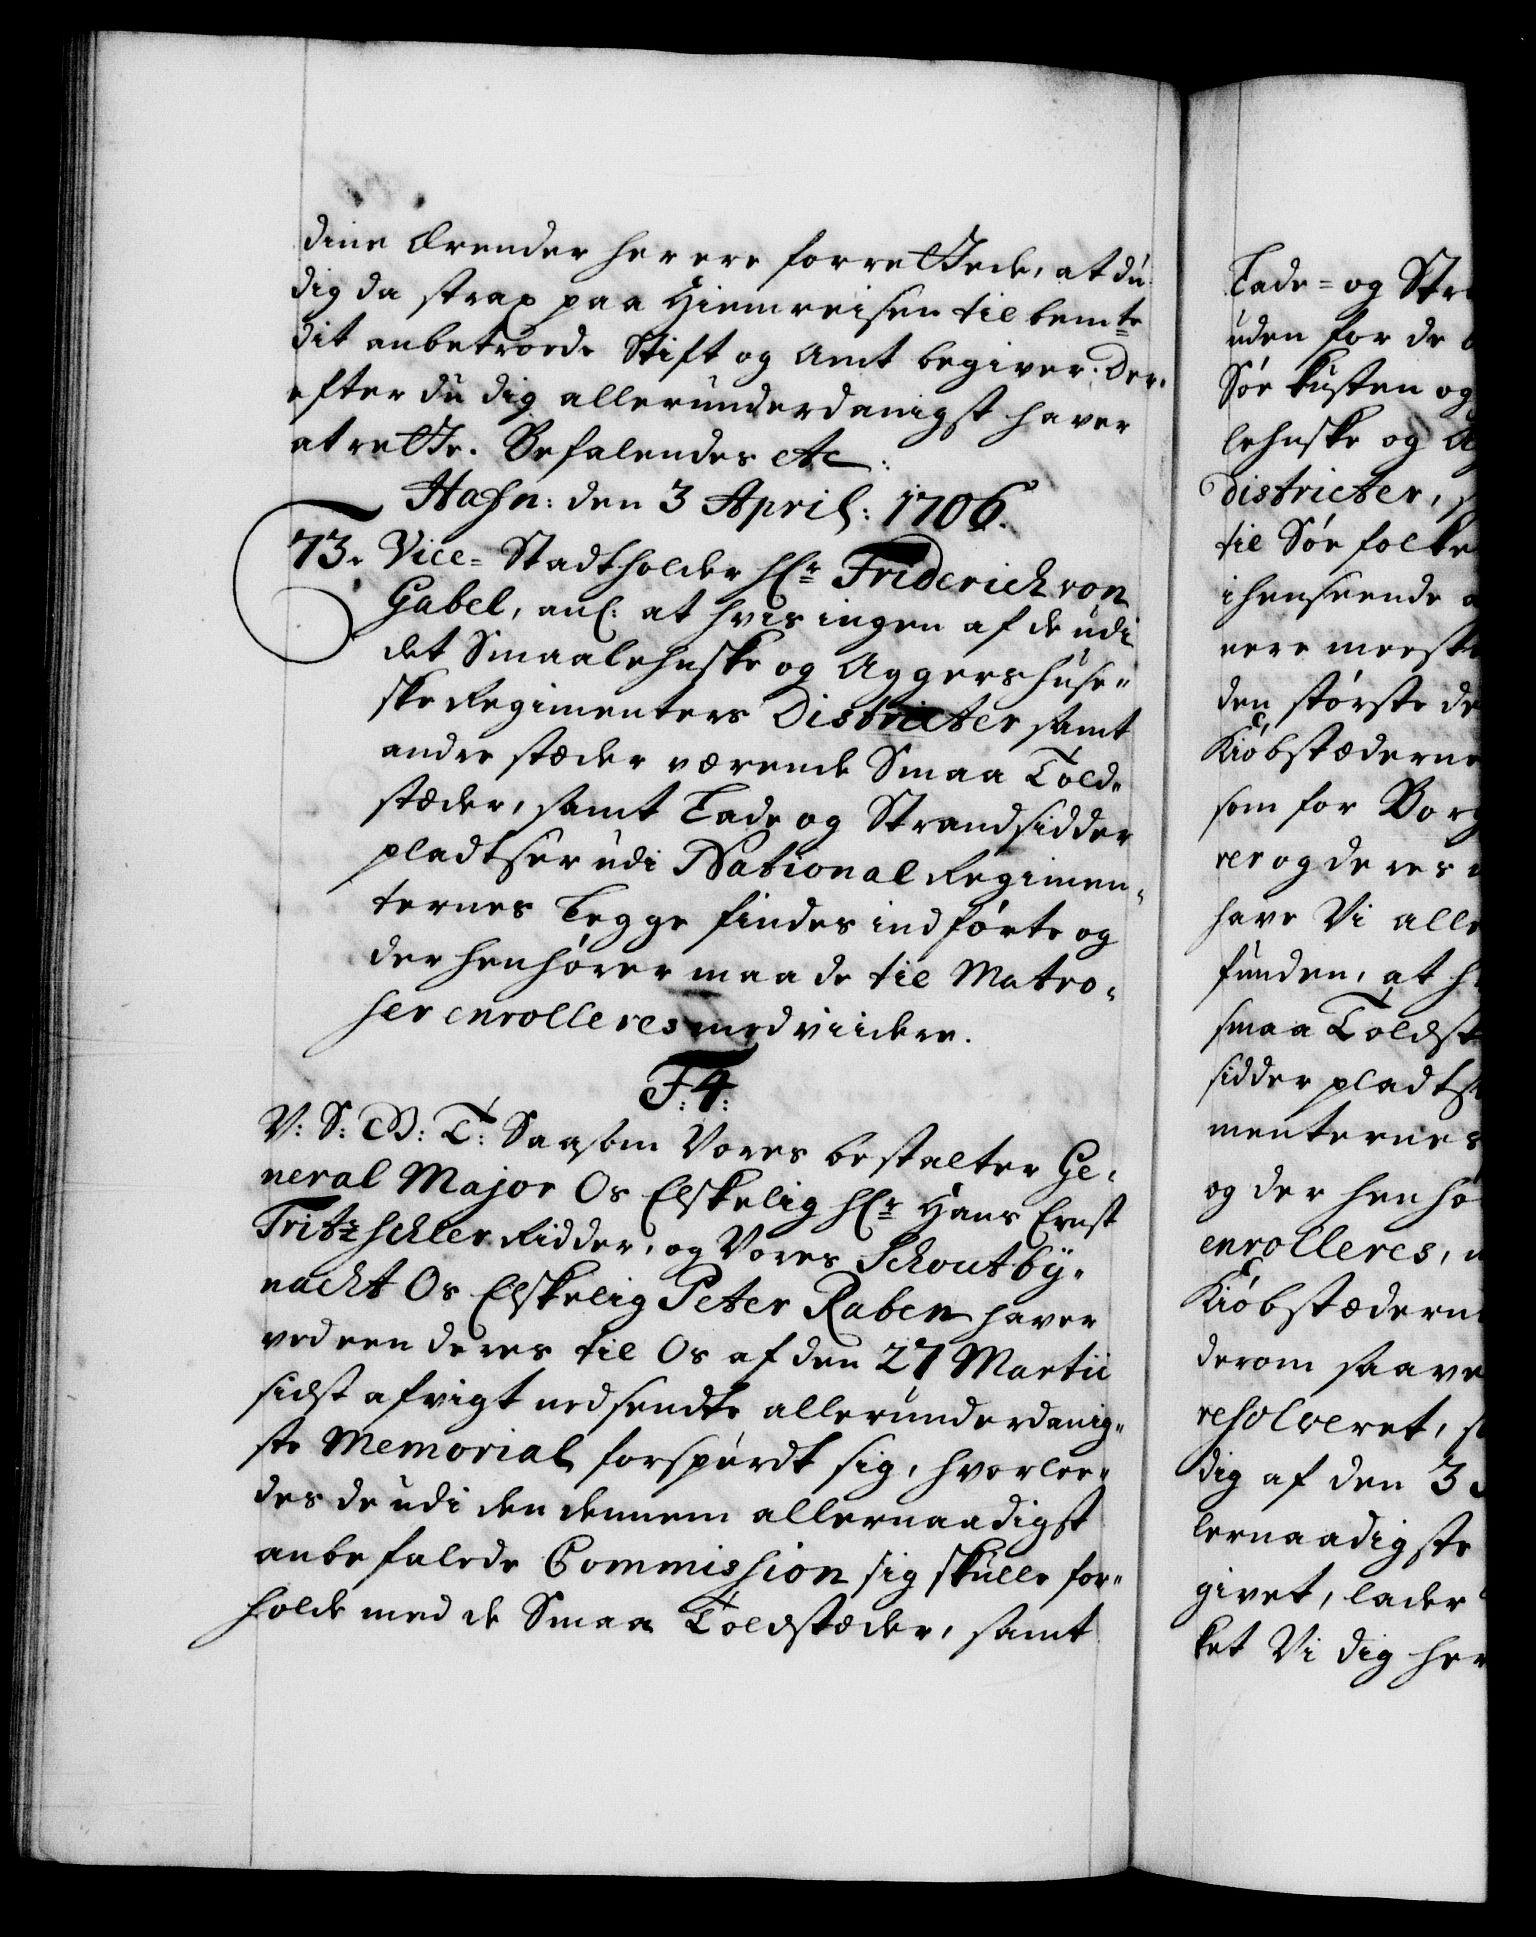 dine Ærender her ere forrettede, at du
dig da strax paa Hiemreisen til bemte
dit anbetroede Stift og Amt begiver. Der-
efter du dig allerunderdanigst haver
at rette. Befalendes etc:
Hafn: den 3 April: 1706.
73. Vice-Stadtholder Hr Friderich von
Gabel, anl: at hvis ingen af de udi
det Smaalehnske og Aggershuse-
ske Regimenters Districter samt
andre stæder værende Smaa Told-
stæder, samt Lade og Strandsidder
pladtser udi National Regimen-
ternes Legge findes indførte og
der henhører maa de til Matro-
ser enrolleres med viidere.
F:4:
V: S: G: T: Saasom Vores bestalter Ge-
neral Major Os Elskelig Hr Hans Ernst
Tritzschler Ridder, og Vores Schoutby-
nacht Os Elskelig Peter Raben haver
ved een deres til Os af den 27 Martii
sidst afvigt nedsendte allerunderdanig-
ste Memorial forspurdt sig, hvorlee-
des de udi den dennem allernaadigst
anbefalede Commission sig skulle for-
holde med de Smaa Toldstæder, samt
Lade- og Str
uden for de
Søe kusten og
lehnske og A
Districter, s
til Søe folke
i henseende a
nere meeste
den største de
Kiøbstæderne
som for Borg
rer og deres
have Vi alle
funden, at h
smaa Toldst
sidder pladts
menternes
og der henhø
enrolleres,
Kiøbstædern
derom saave
resolveret, s
dig af den 3
lernaadigste
givet, lader
ket Vi dig her